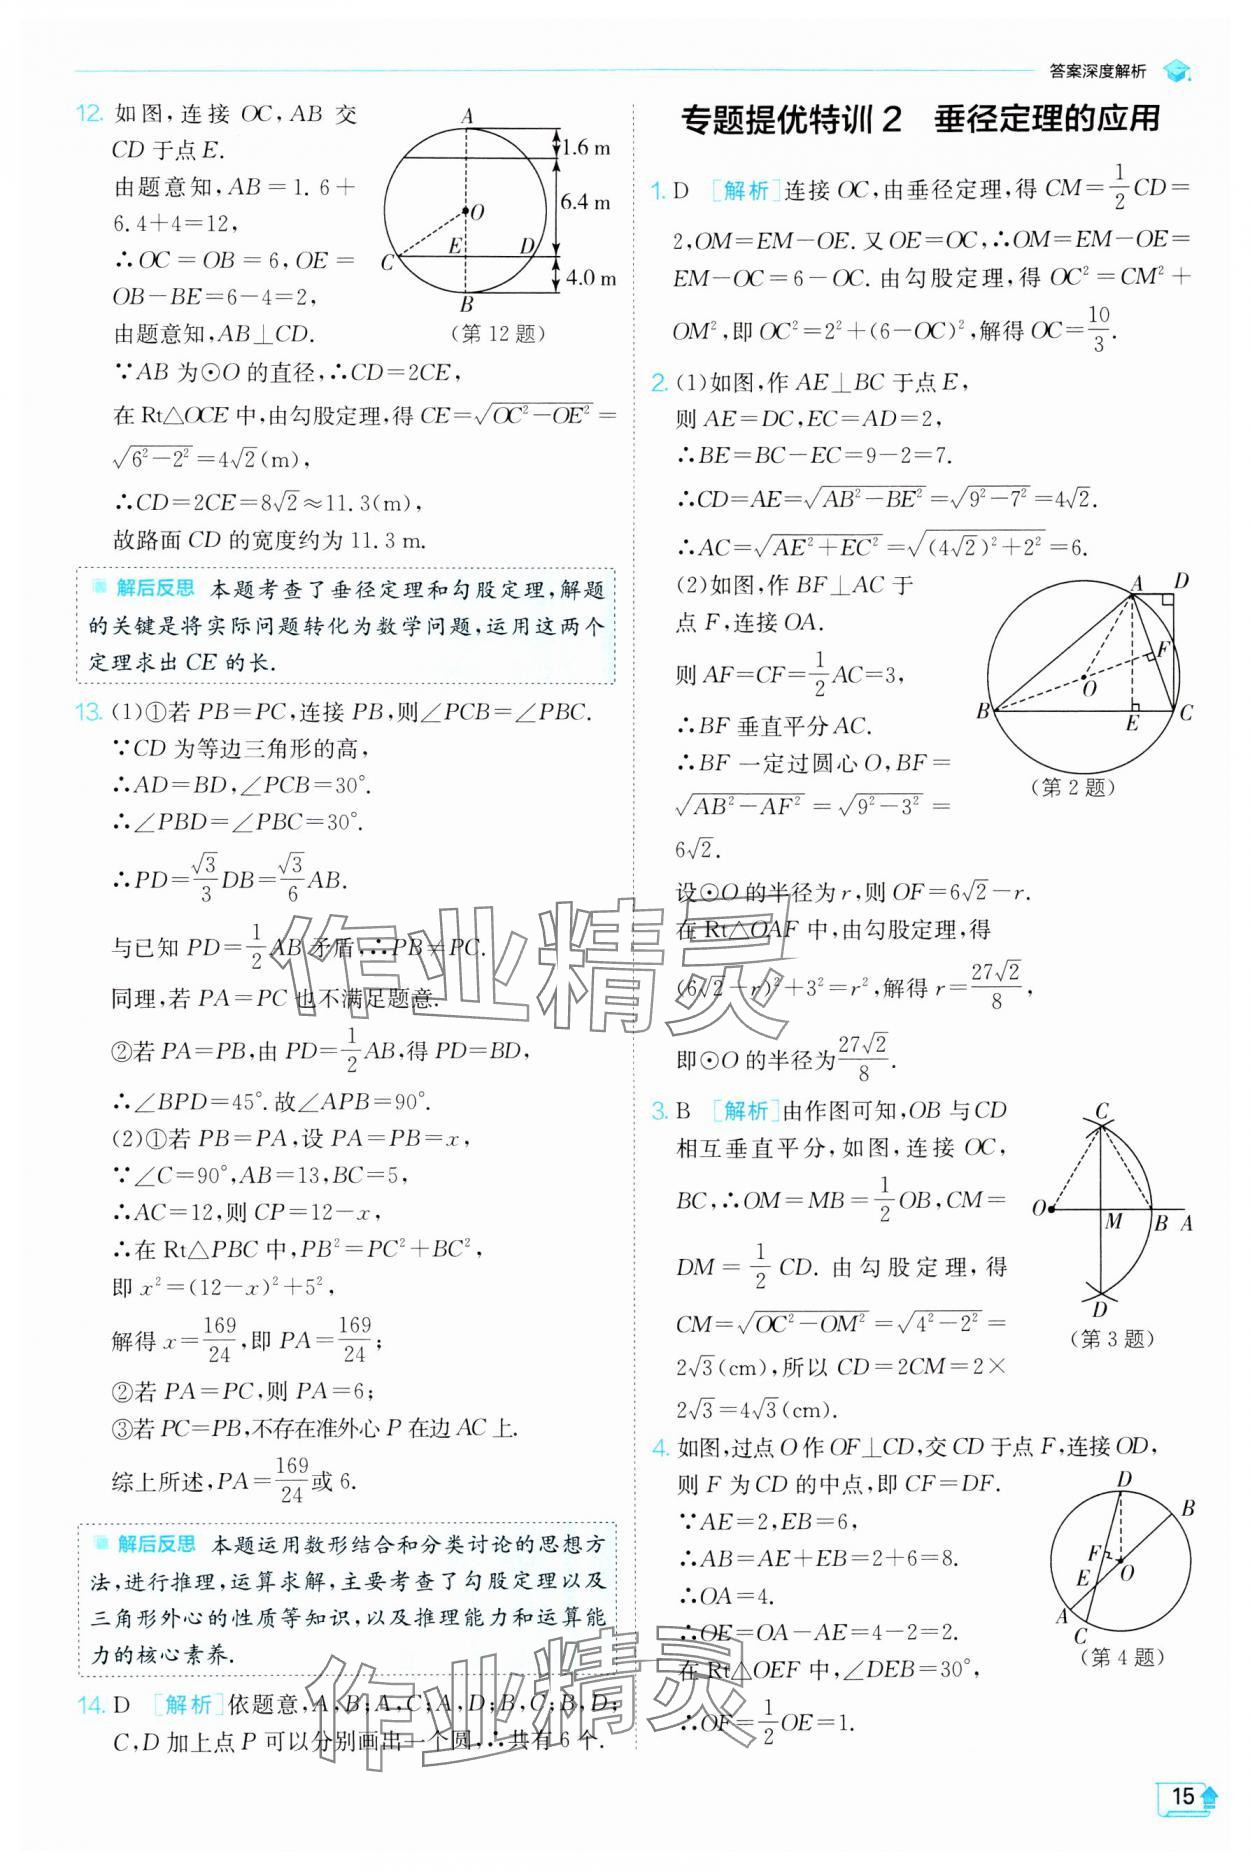 答案深度解析
12. 如图,连接 OC,AB 交
CD 于点 E.
由题意知,AB=1.6+
6.4+4=12,
∴OC=OB=6,OE=
OB-BE=6-4=2,
由题意知,AB⊥CD.
A
1.6 m
6.4 m
O
E
D
C
4.0 m
B
(第 12 题)
∵AB 为⊙O 的直径,∴CD=2CE,
在 Rt△OCE 中,由勾股定理,得 CE=√(OC²-OE²)=
√(6²-2²)=4√2(m),
∴CD=2CE=8√2≈11.3(m),
故路面 CD 的宽度约为 11.3 m.
解后反思 本题考查了垂径定理和勾股定理,解题
的关键是将实际问题转化为数学问题,运用这两个
定理求出 CE 的长.
13. (1)①若 PB=PC,连接 PB,则∠PCB=∠PBC.
∵CD 为等边三角形的高,
∴AD=BD,∠PCB=30°.
∴∠PBD=∠PBC=30°.
∴PD=√3/3 DB=√3/6 AB.
与已知 PD=1/2 AB 矛盾,∴PB≠PC.
同理,若 PA=PC 也不满足题意.
②若 PA=PB,由 PD=1/2 AB,得 PD=BD,
∴∠BPD=45°.故∠APB=90°.
(2)①若 PB=PA,设 PA=PB=x,
∵∠C=90°,AB=13,BC=5,
∴AC=12,则 CP=12-x,
∴在 Rt△PBC 中,PB²=PC²+BC²,
即 x²=(12-x)²+5²,
解得 x=169/24,即 PA=169/24;
②若 PA=PC,则 PA=6;
③若 PC=PB,不存在准外心 P 在边 AC 上.
综上所述,PA=169/24或 6.
解后反思 本题运用数形结合和分类讨论的思想方
法,进行推理,运算求解,主要考查了勾股定理以及
三角形外心的性质等知识,以及推理能力和运算能
力的核心素养.
14. D [解析]依题意,A,B;A,C;A,D;B,C;B,D;
C,D 加上点 P 可以分别画出一个圆,∴共有 6 个.
专题提优特训 2 垂径定理的应用
1. D [解析]连接 OC,由垂径定理,得 CM=1/2 CD=
2,OM=EM-OE.又 OE=OC,∴OM=EM-OE=
EM-OC=6-OC.由勾股定理,得 OC²=CM²+
OM²,即 OC²=2²+(6-OC)²,解得 OC=10/3.
2. (1)如图,作 AE⊥BC 于点 E,
则 AE=DC,EC=AD=2,
∴BE=BC-EC=9-2=7.
∴CD=AE=√(AB²-BE²)=√(9²-7²)=4√2.
∴AC=√(AE²+EC²)=√((4√2)²+2²)=6.
(2)如图,作 BF⊥AC 于
点 F,连接 OA.
则 AF=CF=1/2 AC=3,
∴BF 垂直平分 AC.
∴BF 一定过圆心 O,BF=
√(AB²-AF²)=√(9²-3²)=
6√2.
A
D
F
O
B
E
C
(第 2 题)
设⊙O 的半径为 r,则 OF=6√2-r.
在 Rt△OAF 中,由勾股定理,得
(6√2-r)²+3²=r²,解得 r=27√2/8,
即⊙O 的半径为27√2/8.
3. B [解析]由作图可知,OB 与 CD
相互垂直平分,如图,连接 OC,
BC,∴OM=MB=1/2 OB,CM=
DM=1/2 CD.由勾股定理,得
CM=√(OC²-OM²)=√(4²-2²)=
2√3(cm),所以 CD=2CM=2×
2√3=4√3(cm).
C
O
M
B
A
D
(第 3 题)
4. 如图,过点 O 作 OF⊥CD,交 CD 于点 F,连接 OD,
则 F 为 CD 的中点,即 CF=DF.
∵AE=2,EB=6,
∴AB=AE+EB=2+6=8.
∴OA=4.
∴OE=OA-AE=4-2=2.
在 Rt△OEF 中,∠DEB=30°,
∴OF=1/2 OE=1.
D
B
F
E
O
A
C
(第 4 题)
15
作业精灵
作业精灵